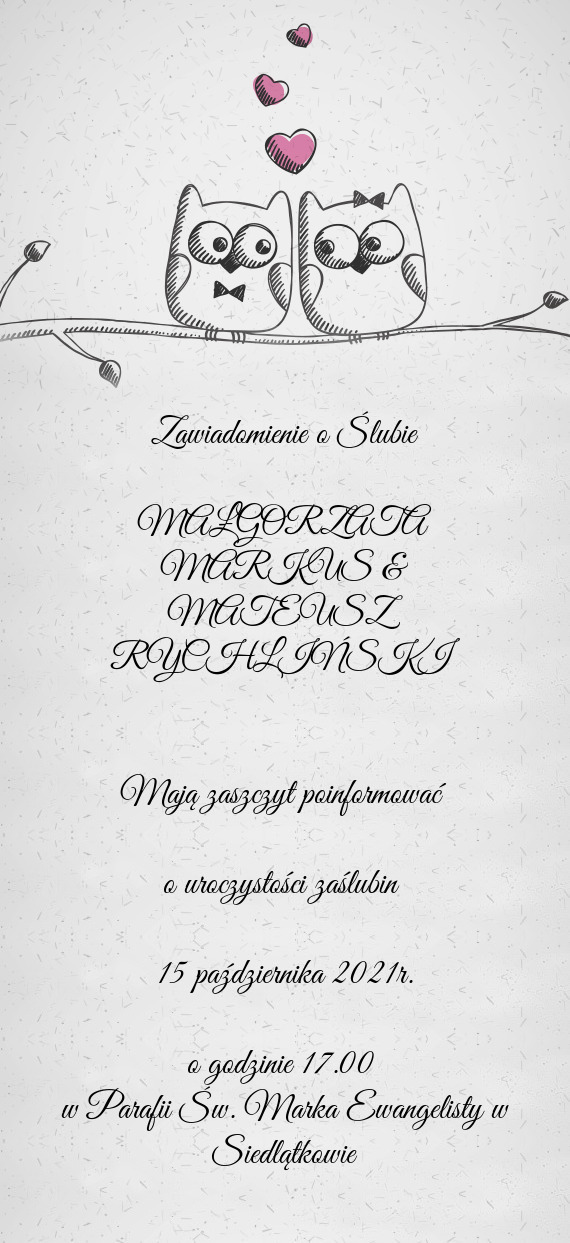 Zawiadomienie o Ślubie
MAŁGORZATA
MARKUS &
MATEUSZ
RYCHLIŃSKI
Mają zaszczyt poinformować
o uroczystości zaślubin
15 października 2021r.
o godzinie 17.00
w Parafii Św. Marka Ewangelisty w
Siedlątkowie